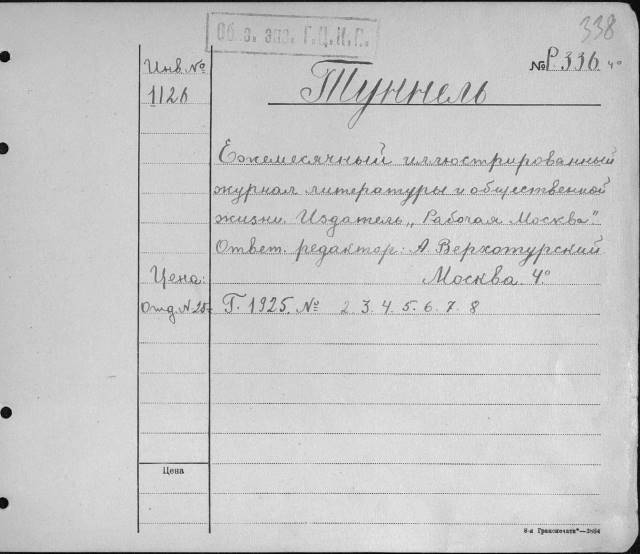 338
Об. з. экз. Г.Ц.К.П.
Инв. №
1126
№ Р. 336 4°
Туннель
Ежемесячный иллюстрированный
журнал литературы и общественной
жизни. Издатель „Рабочая Москва".
Ответ. редактор: А. Верхотурский
Цена:
Москва. 4°.
Отд. № 25=
Г. 1925. № 2. 3. 4. 5. 6. 7. 8
Цена
8-я Транспечати"—2884